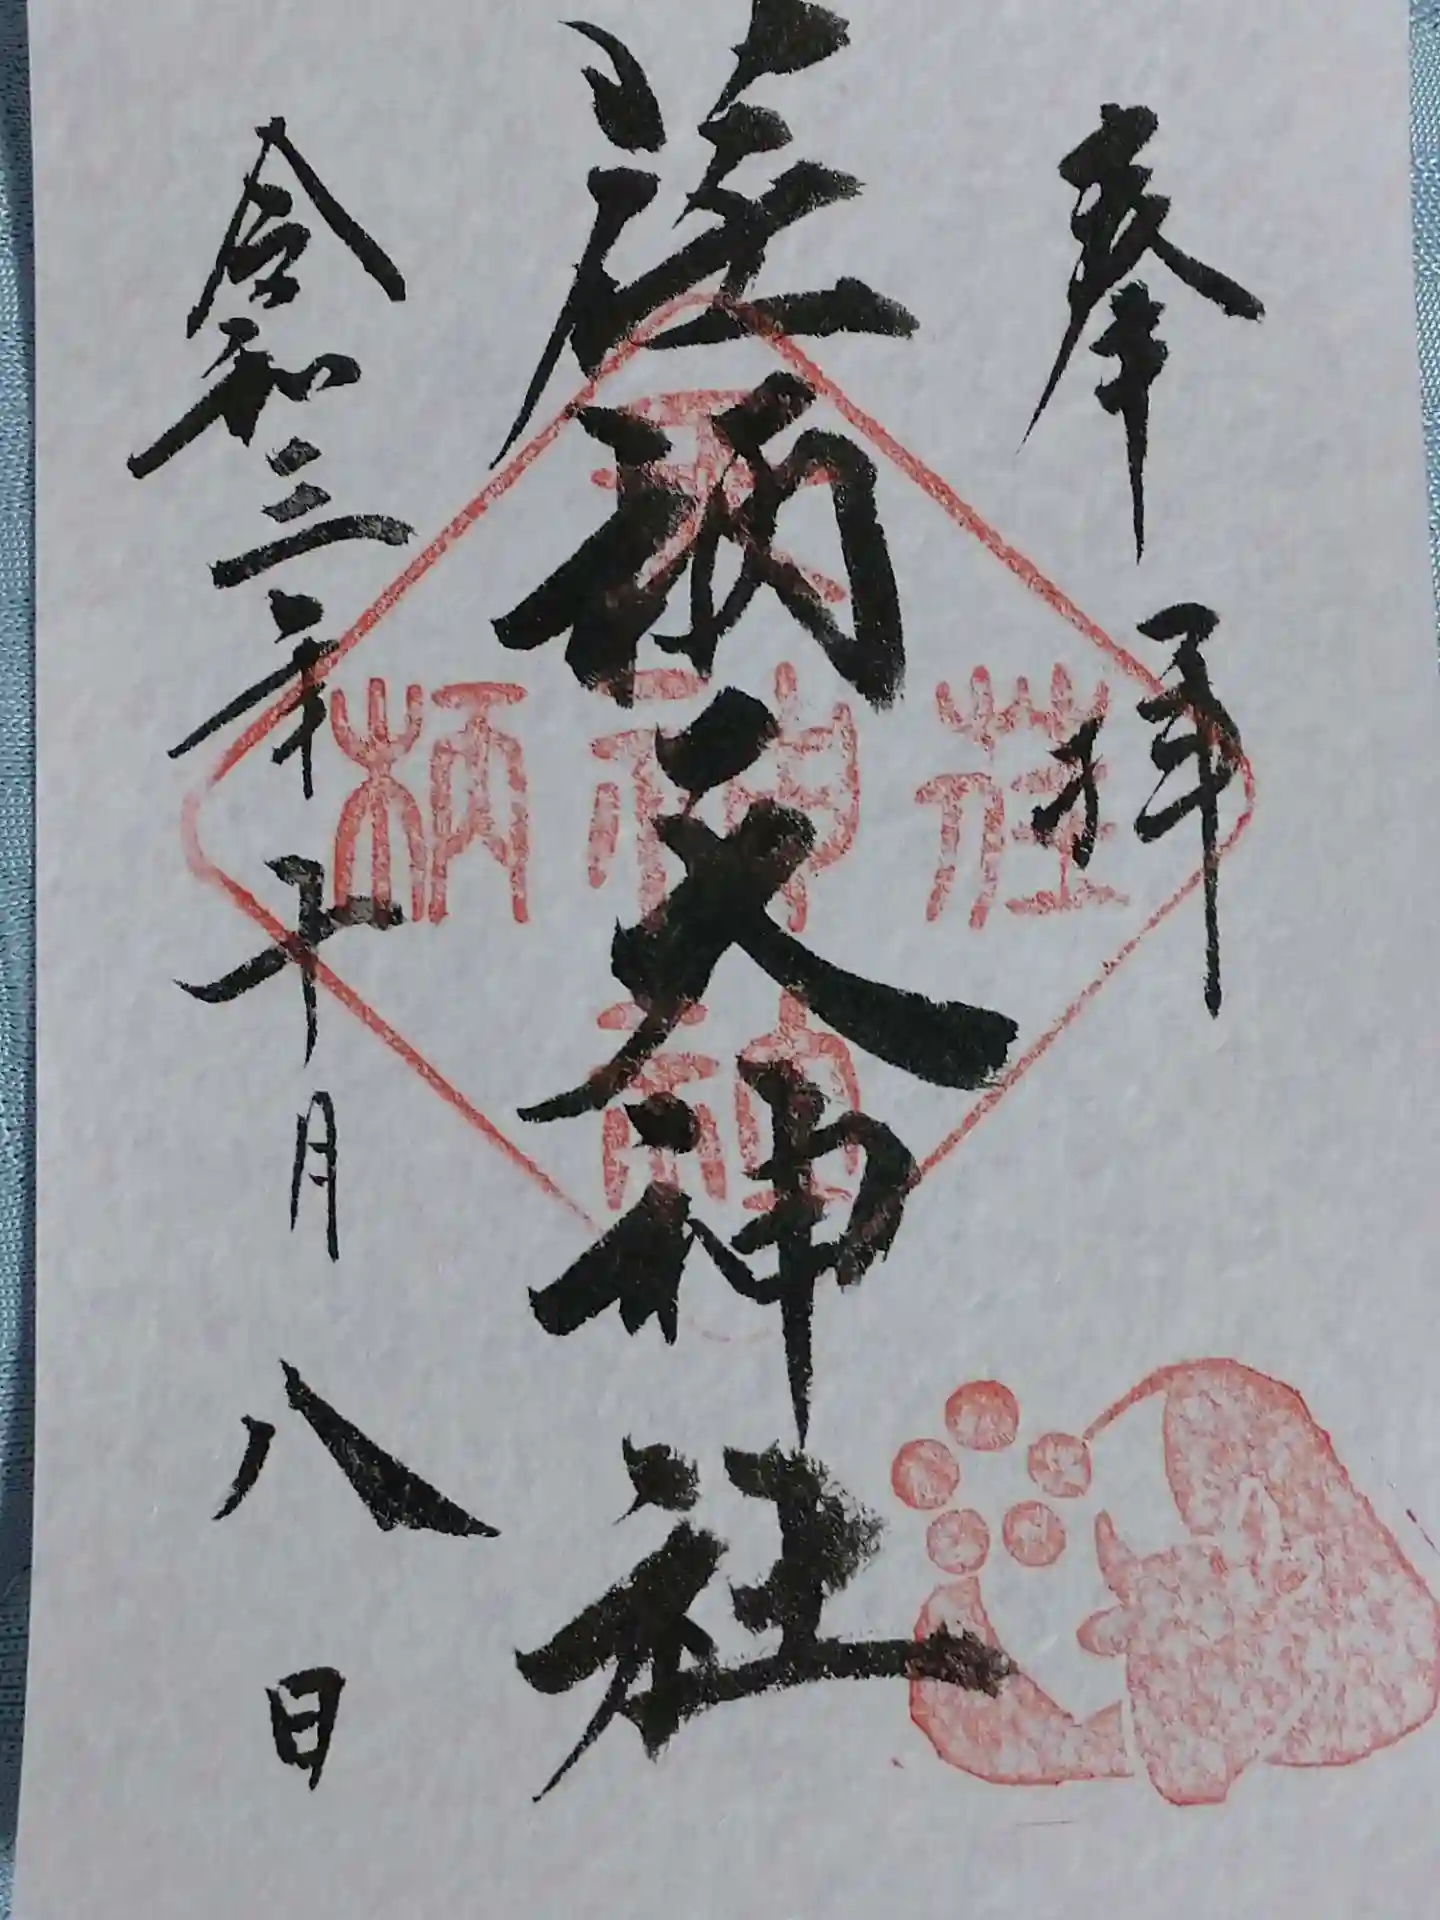 奉拝
荏柄天神社
令和三年十月八日
天
荏神柄